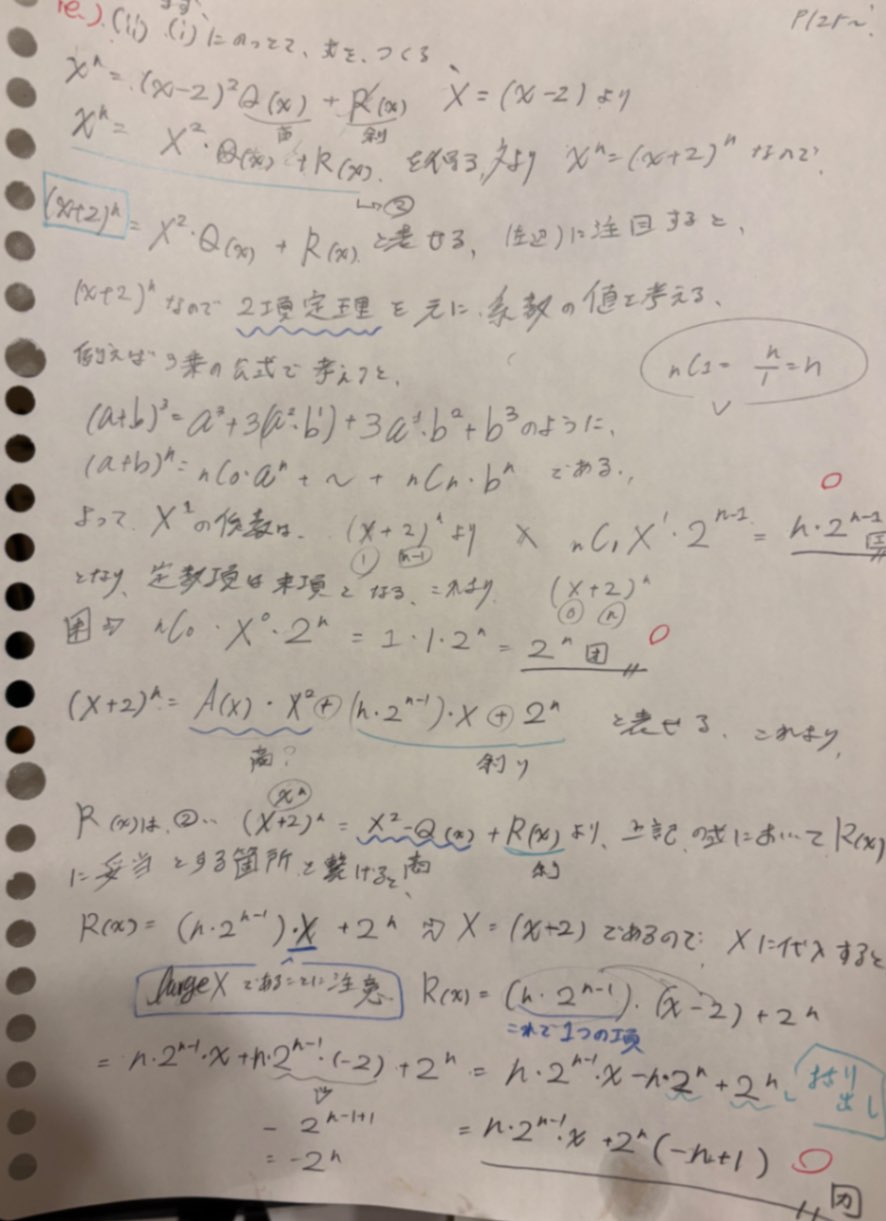 P125~
(ii) (i)にのって、式を、つくる、
x^n = (x-2)^2 Q(x) + R(x)  X = (x-2)より
商 剰
x^n = X^2・Q(x) + R(x) を得る, より x^n = (X+2)^n なので
↳②
(X+2)^n = X^2・Q(x) + R(x) と表せる, (左辺)に注目すると、
(X+2)^n なので 2項定理を元に、係数の値を考える、
例えば 3乗の公式で考えると、
nC1 = n/1 = n
(a+b)^3 = a^3 + 3(a^2・b^1) + 3a^1・b^2 + b^3 のように、
(a+b)^n = nC0・a^n + ~ + nCn・b^n である.,
よって X^1の係数は、(X+2)^n より nC1 X^1・2^{n-1} = n・2^{n-1} エ
① n-1
となり、定数項は末項となる、これより (X+2)^n
0 n
オ ⇨ nC0・X^0・2^n = 1・1・2^n = 2^n オ
(X+2)^n = A(x)・X^2 + (n・2^{n-1})・X + 2^n と表せる、これより,
商? 剰り
x^n
R(x)は、②‥ (X+2)^n = X^2・Q(x) + R(x) より、上記の式においてR(x)
商 剰
に妥当とする箇所と繋げると、
R(x) = (n・2^{n-1})・X + 2^n ⇨ X = (x+2) であるので、Xに代入すると
large X であることに注意 R(x) = (n・2^{n-1})・(x-2) + 2^n
これで1つの項
= n・2^{n-1}・x + n・2^{n-1}・(-2) + 2^n = n・2^{n-1}・x - n・2^n + 2^n
くくり出し
- 2^{n-1+1} = n・2^{n-1}・x + 2^n(-n+1)
= -2^n カ